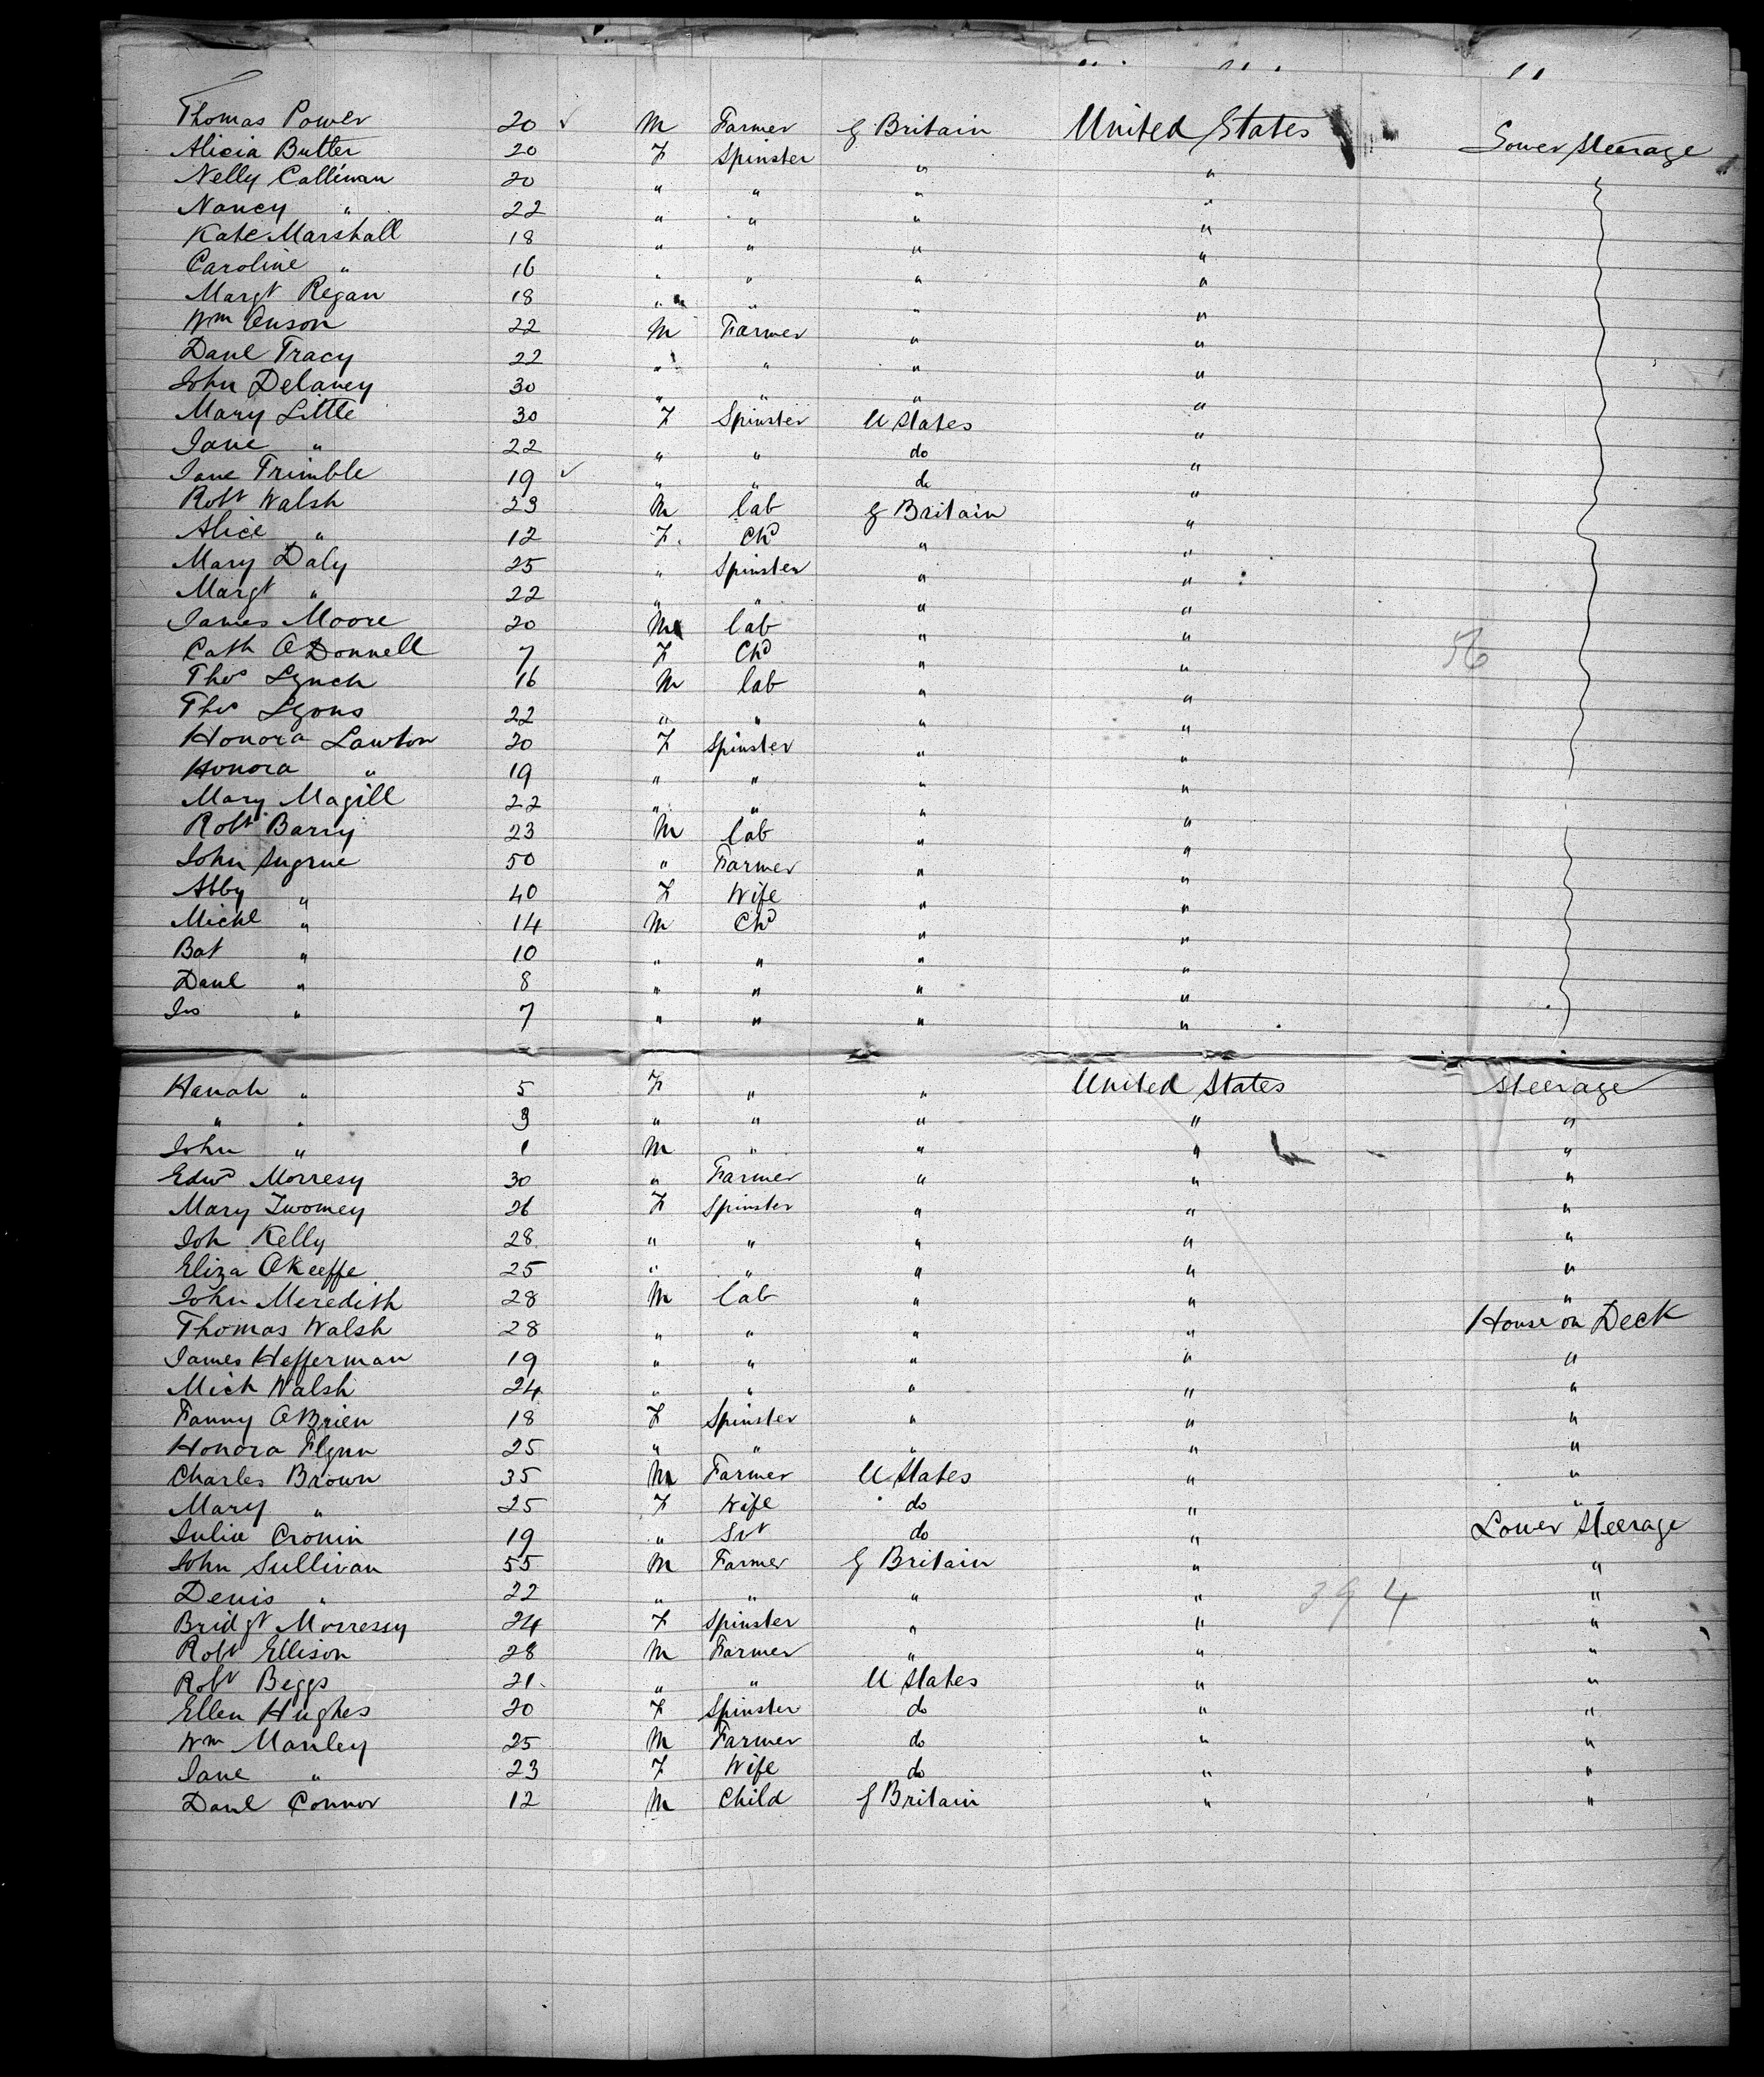 Thomas Power 20 ✓ M Farmer G Britain United States Lower Steerage
Alicia Butler 20 F Spinster " "
Nelly Callinan 20 " " " "
Nancy " 22 " " " "
Kate Marshall 18 " " " "
Caroline " 16 " " " "
Margt Regan 18 " " " "
Wm Anson 22 M Farmer " "
Danl Tracy 22 " " " "
John Delaney 30 " " " "
Mary Little 30 F Spinster U States "
Jane " 22 " " do "
Jane Trimble 19 ✓ " " do "
Robt Walsh 23 M lab G Britain "
Alice " 12 F Chd " "
Mary Daly 25 " Spinster " "
Margt " 22 " " " "
James Moore 20 M lab " "
Cath O Donnell 7 F Chd " " 56
Thos Lynch 16 M lab " "
Thos Lyons 22 " " " "
Honora Lawton 20 F Spinster " "
Honora " 19 " " " "
Mary Magill 22 " " " "
Robt Barry 23 M lab " "
John Sugrue 50 " Farmer " "
Abby " 40 F Wife " "
Michl " 14 M Chd " "
Bat " 10 " " " "
Danl " 8 " " " "
Jas " 7 " " " "
Hanah " 5 F " " United States Steerage
" " 3 " " " " "
John " 1 M " " " "
Edwd Morresy 30 " Farmer " " "
Mary Twomey 26 F Spinster " " "
Joh Kelly 28 " " " " "
Eliza OKeeffe 25 " " " " "
John Meredith 28 M lab " " "
Thomas Walsh 28 " " " " House on Deck
James Hefferman 19 " " " " "
Mich Walsh 24 " " " " "
Fanny OBrien 18 F Spinster " " "
Honora Flynn 25 " " " " "
Charles Brown 35 M Farmer U States " "
Mary " 25 F Wife do " "
Julia Cronin 19 " Svt do " Lower Steerage
John Sullivan 55 M Farmer G Britain " "
Denis " 22 " " " " 394 "
Bridgt Morressy 24 F Spinster " " "
Robt Ellison 28 M Farmer " " "
Robt Beggs 21 " " U States " "
Ellen Hughes 20 F Spinster do " "
Wm Manley 25 M Farmer do " "
Jane " 23 F Wife do " "
Danl Connor 12 M Child G Britain " "